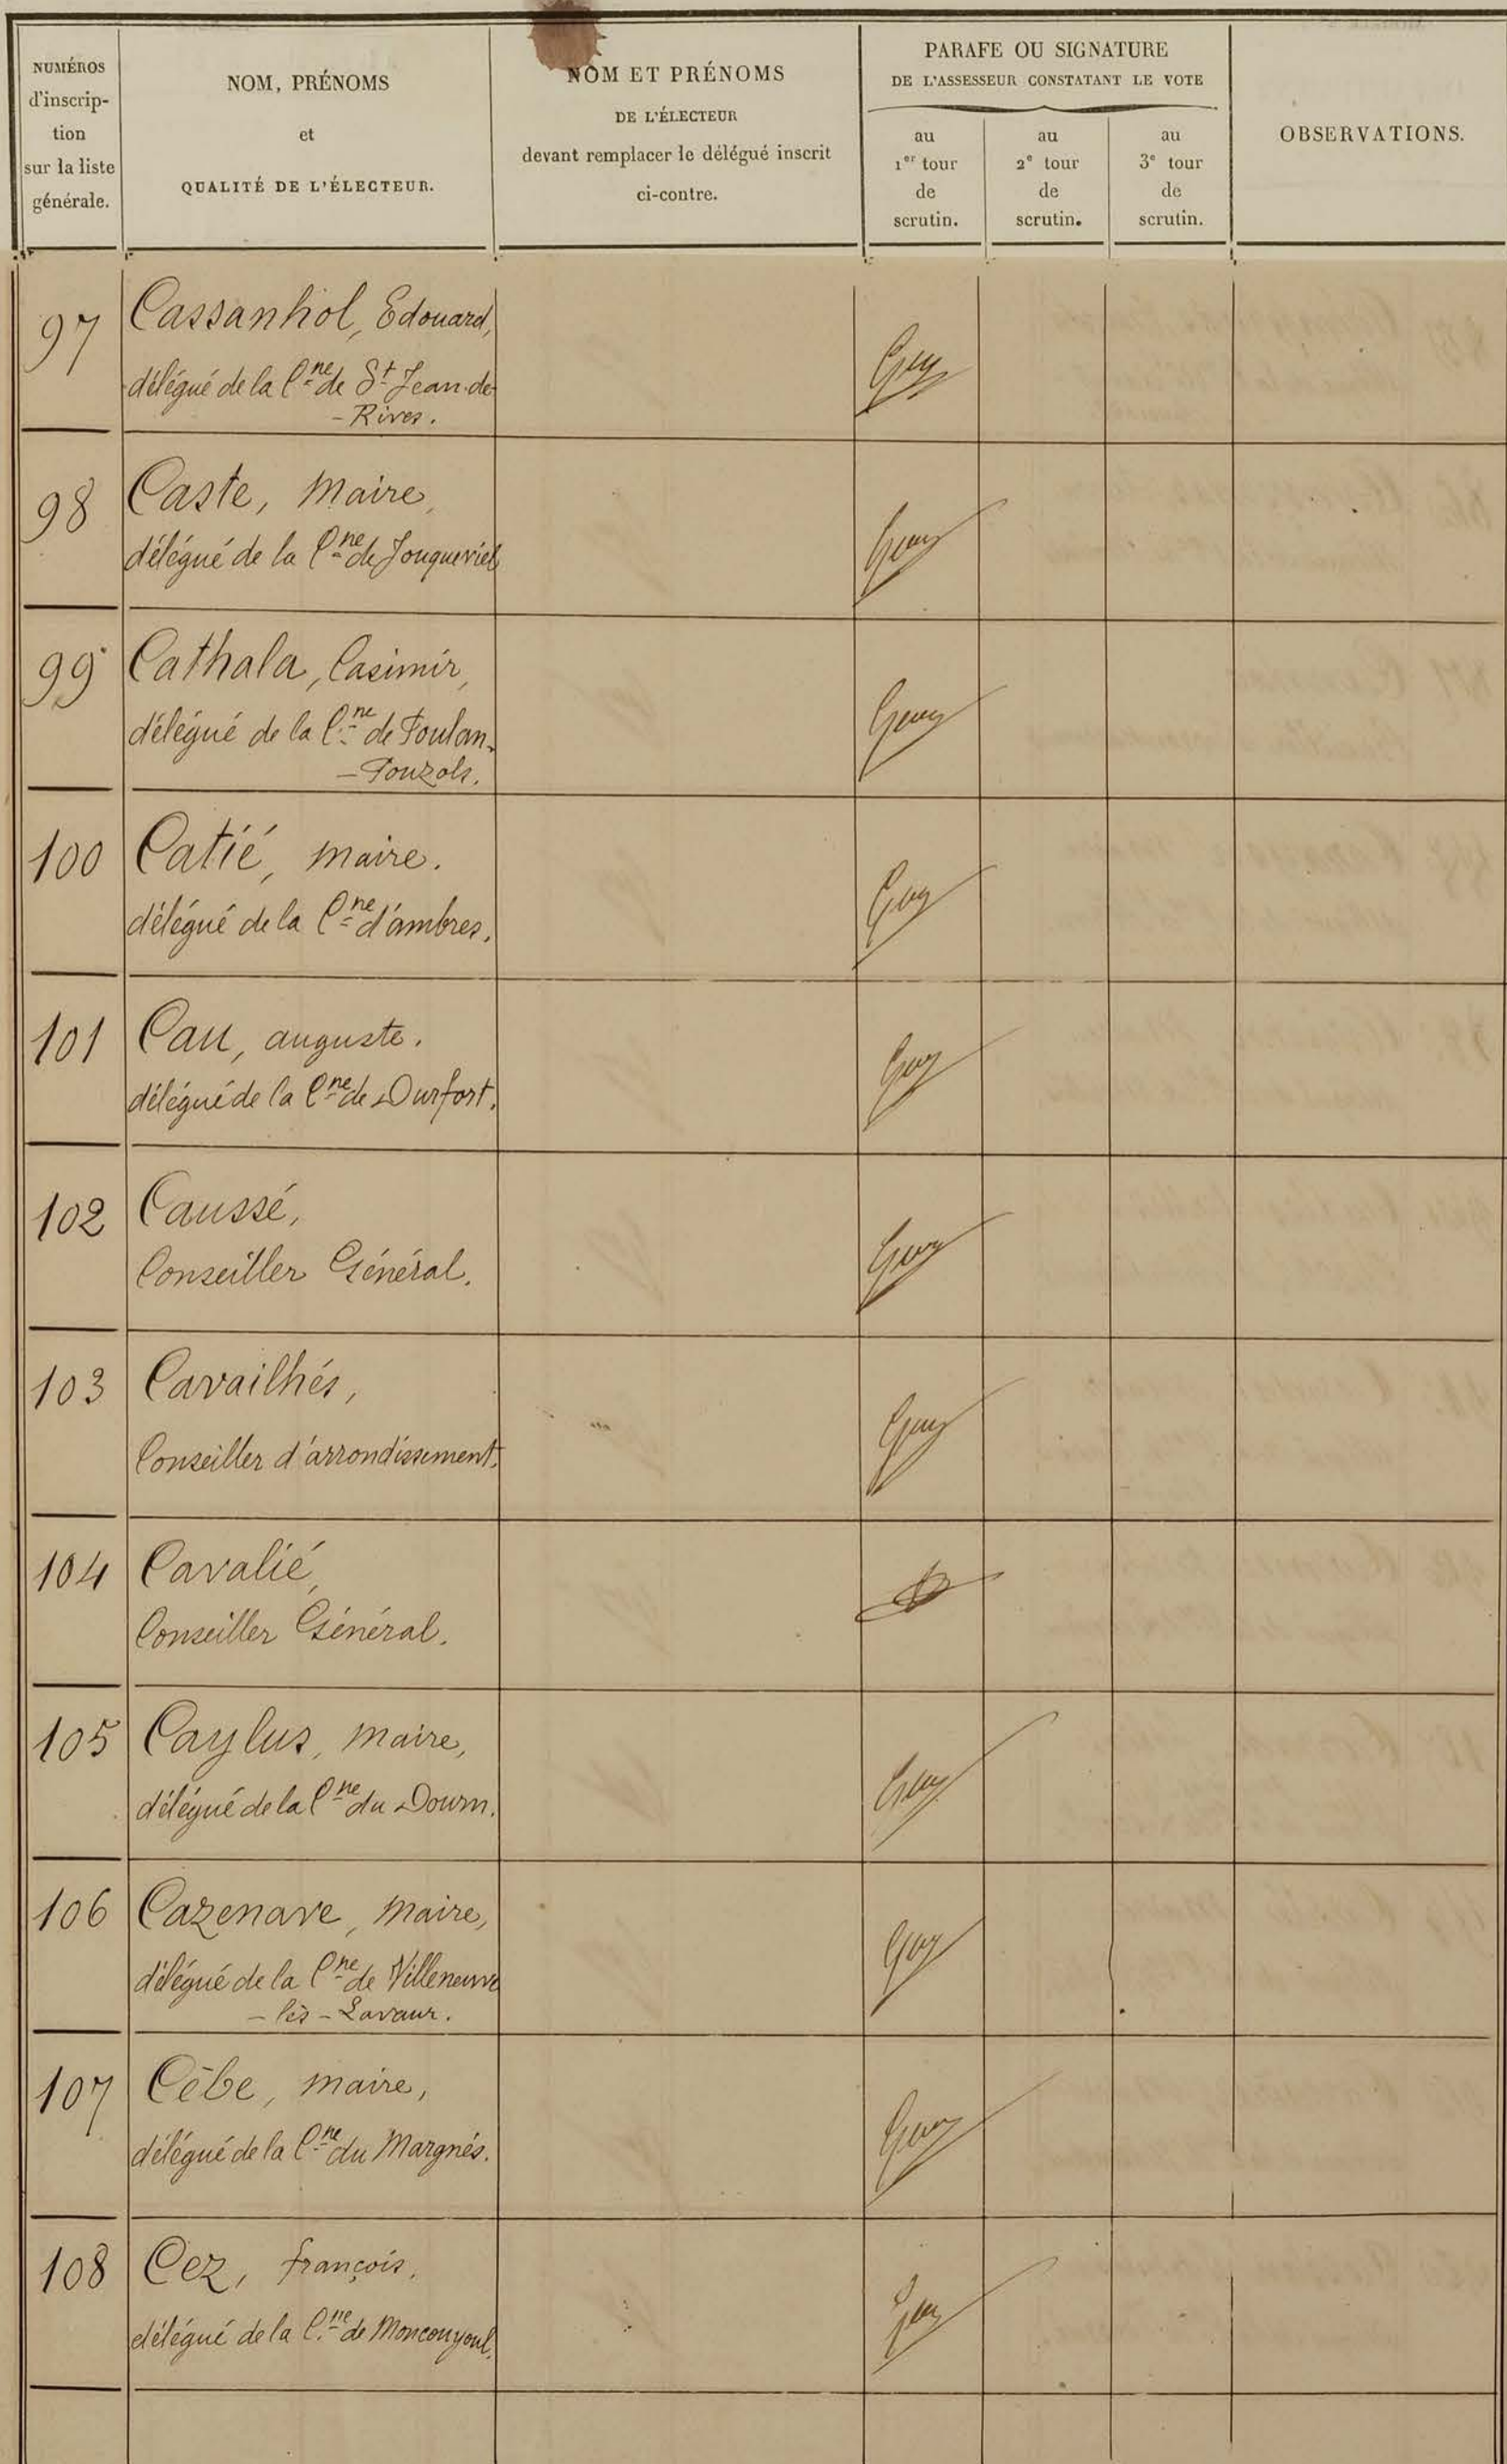 NUMÉROS
d'inscrip-
tion
sur la liste
générale.
NOM, PRÉNOMS
et
QUALITÉ DE L'ÉLECTEUR.
NOM ET PRÉNOMS
DE L'ÉLECTEUR
devant remplacer le délégué inscrit
ci-contre.
PARAFE OU SIGNATURE
DE L'ASSESSEUR CONSTATANT LE VOTE
au
1er tour
de
scrutin.
au
2e tour
de
scrutin.
au
3e tour
de
scrutin.
OBSERVATIONS.
97 Cassanhol, Edouard,
délégué de la Cne de St Jean-de-
-Rives.
98 Caste, Maire,
délégué de la Cne de Jouqueviel
99 Cathala, Casimir,
délégué de la Cne de Poulan-
-Pouzols.
100 Catié, maire.
délégué de la Cne d'ambres.
101 Cau, auguste.
délégué de la Cne de Durfort.
102 Caussé,
Conseiller Général.
103 Cavailhés,
Conseiller d'arrondissement.
104 Cavalié,
Conseiller Général.
105 Caylus, maire,
délégué de la Cne du Dourn.
106 Cazenave, maire,
délégué de la Cne de Villeneuve
-lès-Lavaur.
107 Cèbe, maire,
délégué de la Cne du Margnés.
108 Cez, françois,
délégué de la Cne de Moncouyoul.